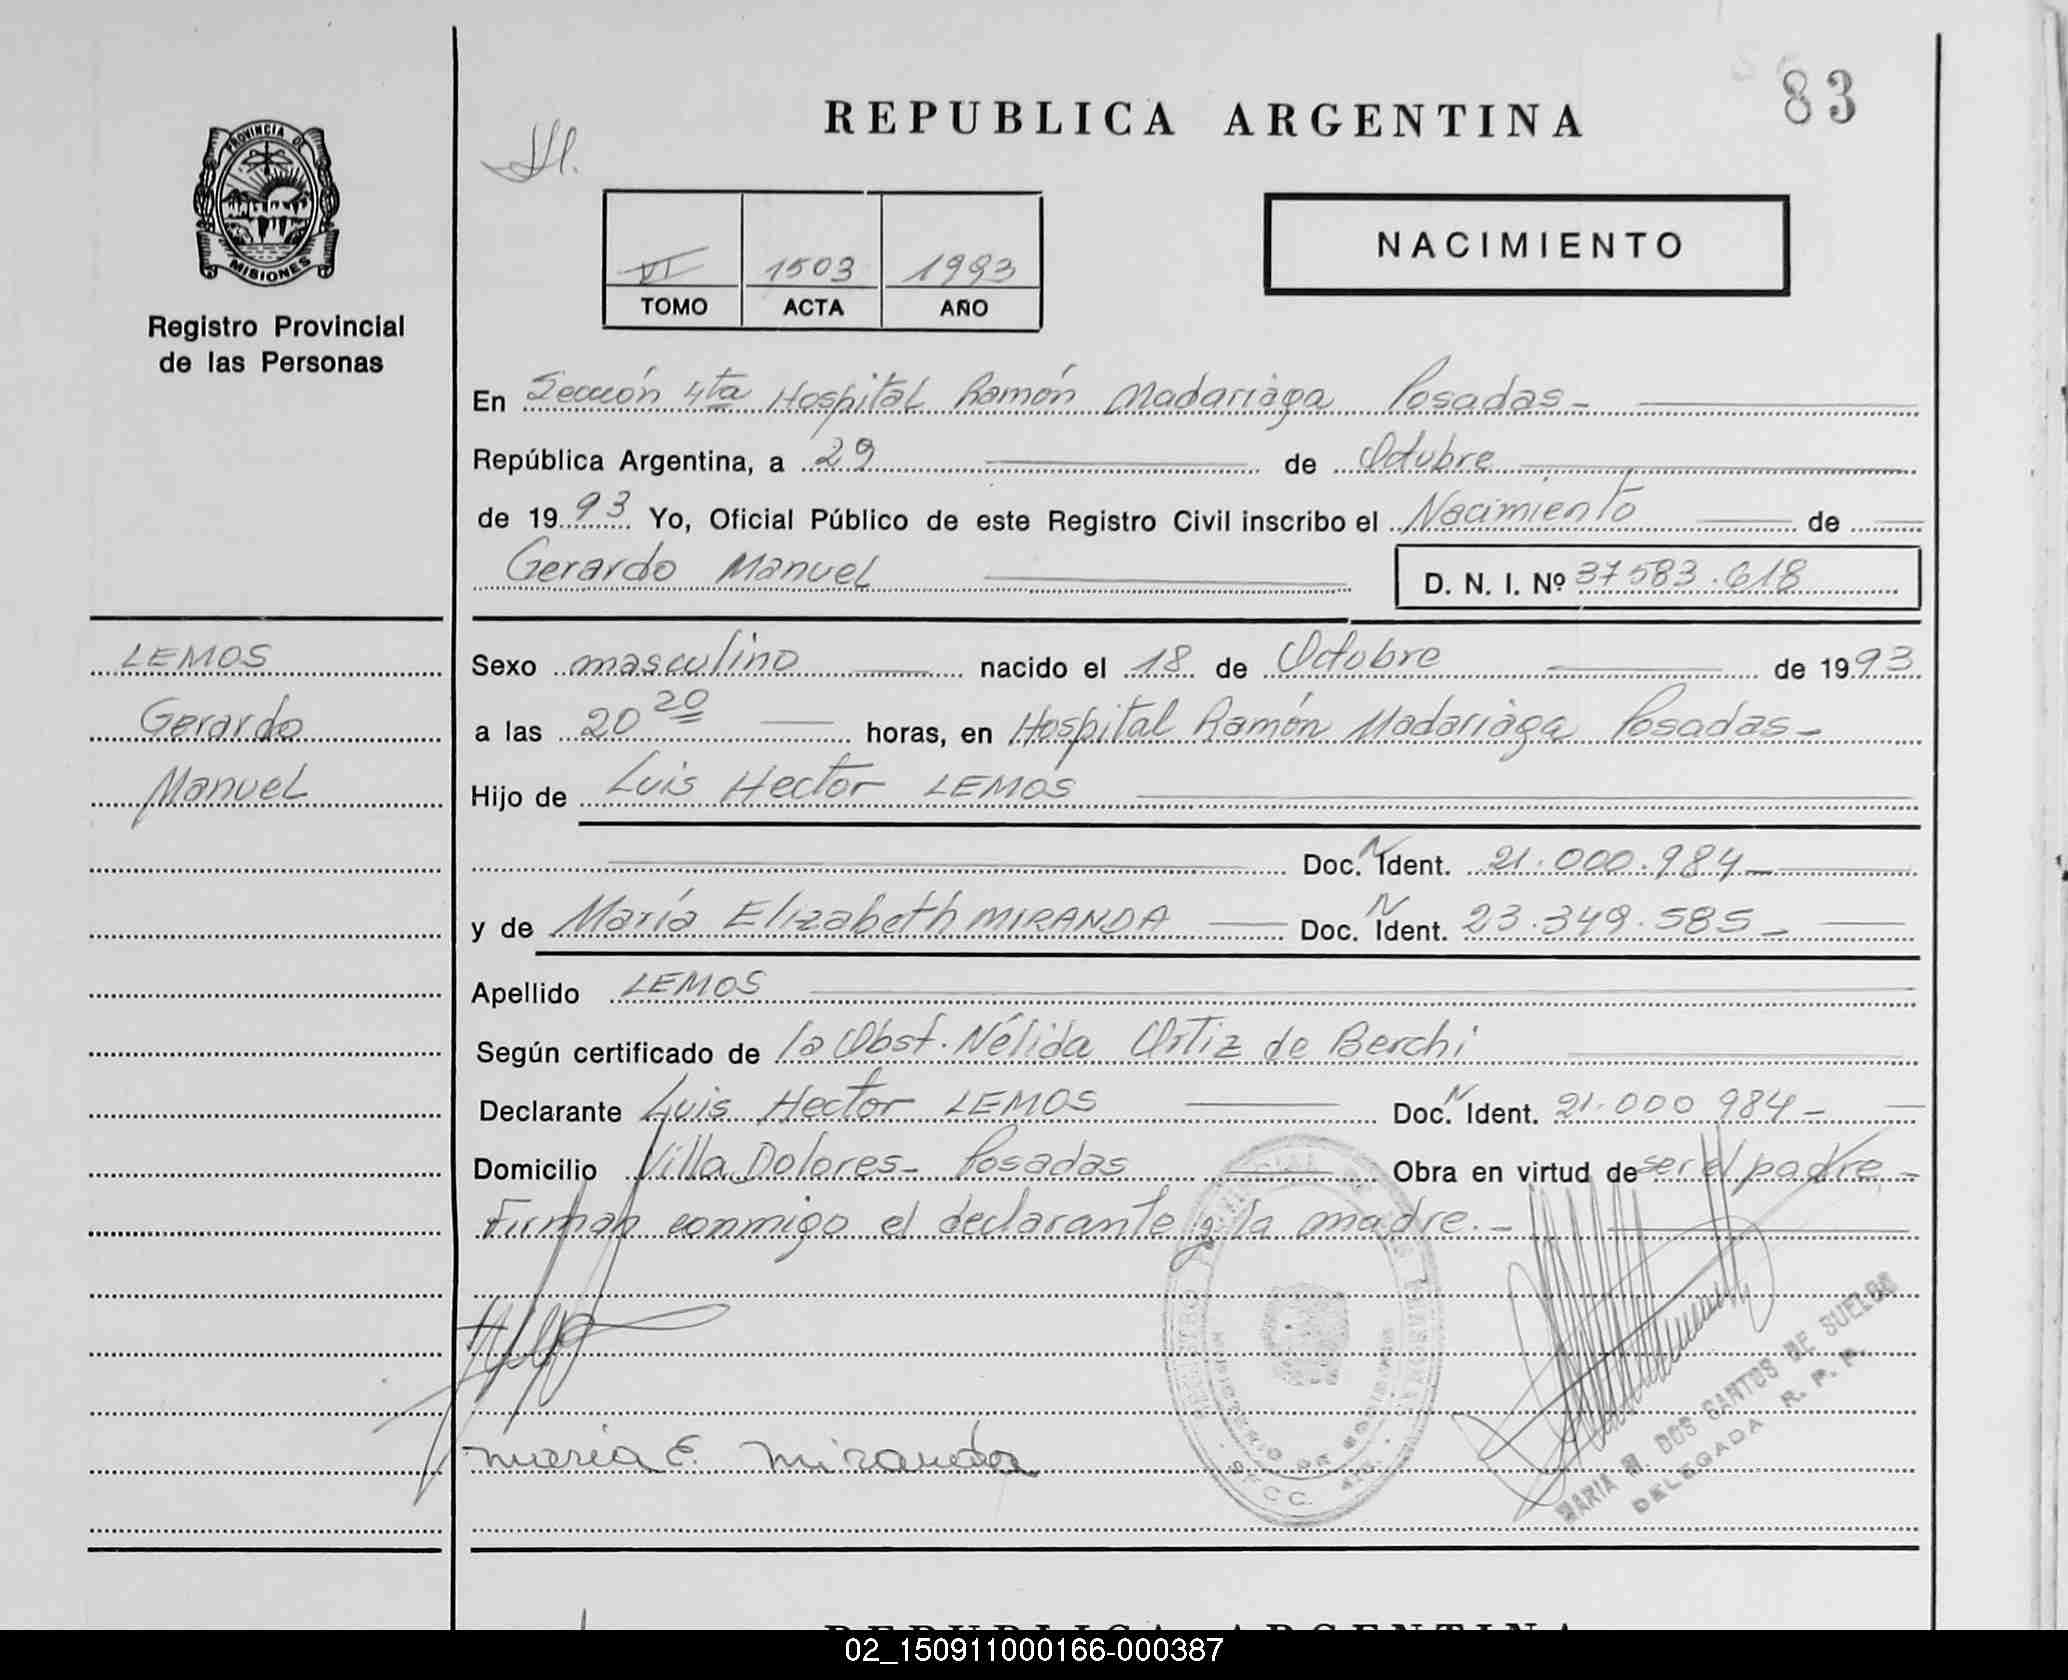 83
REPUBLICA ARGENTINA
PROVINCIA DE
MISIONES
Registro Provincial
de las Personas
NACIMIENTO
VI 1503 1993
TOMO ACTA AÑO
En Sección 4ta Hospital Ramón Madariaga Posadas-
República Argentina, a 29 de Octubre
de 1993 Yo, Oficial Público de este Registro Civil inscribo el Nacimiento de
Gerardo Manuel D. N. I. Nº 37583.618
LEMOS
Gerardo
Manuel
Sexo masculino nacido el 18 de Octubre de 1993
a las 20 20 horas, en Hospital Ramón Madariaga Posadas-
Hijo de Luis Hector LEMOS
Doc. N Ident. 21.000.984-
y de María Elizabeth MIRANDA Doc. N Ident. 23.349.585-
Apellido LEMOS
Según certificado de la Obst. Nélida Ortiz de Berchi
Declarante Luis Hector LEMOS Doc. N Ident. 21.000 984-
Domicilio Villa Dolores- Posadas Obra en virtud de ser el padre-
Firman conmigo el declarante y la madre.-
maria E. miranda
MARIA M. DOS SANTOS DE SUELOS
DELEGADA R. P. P.
REPUBLICA ARGENTINA
02_150911000166-000387